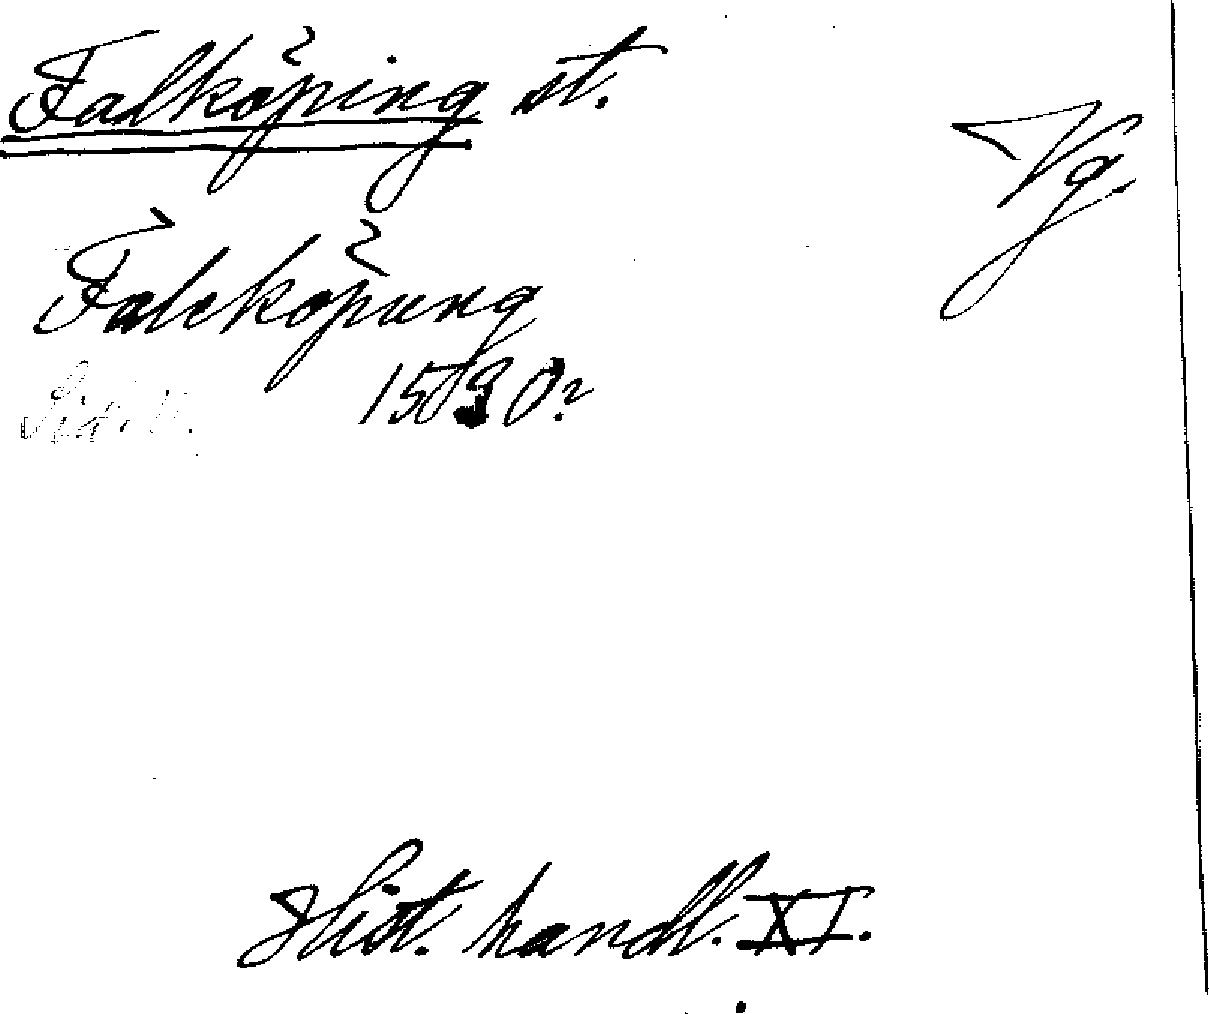 Falköping st.
Vg.
Falcköpung
1530?
Hist. handl. XI.